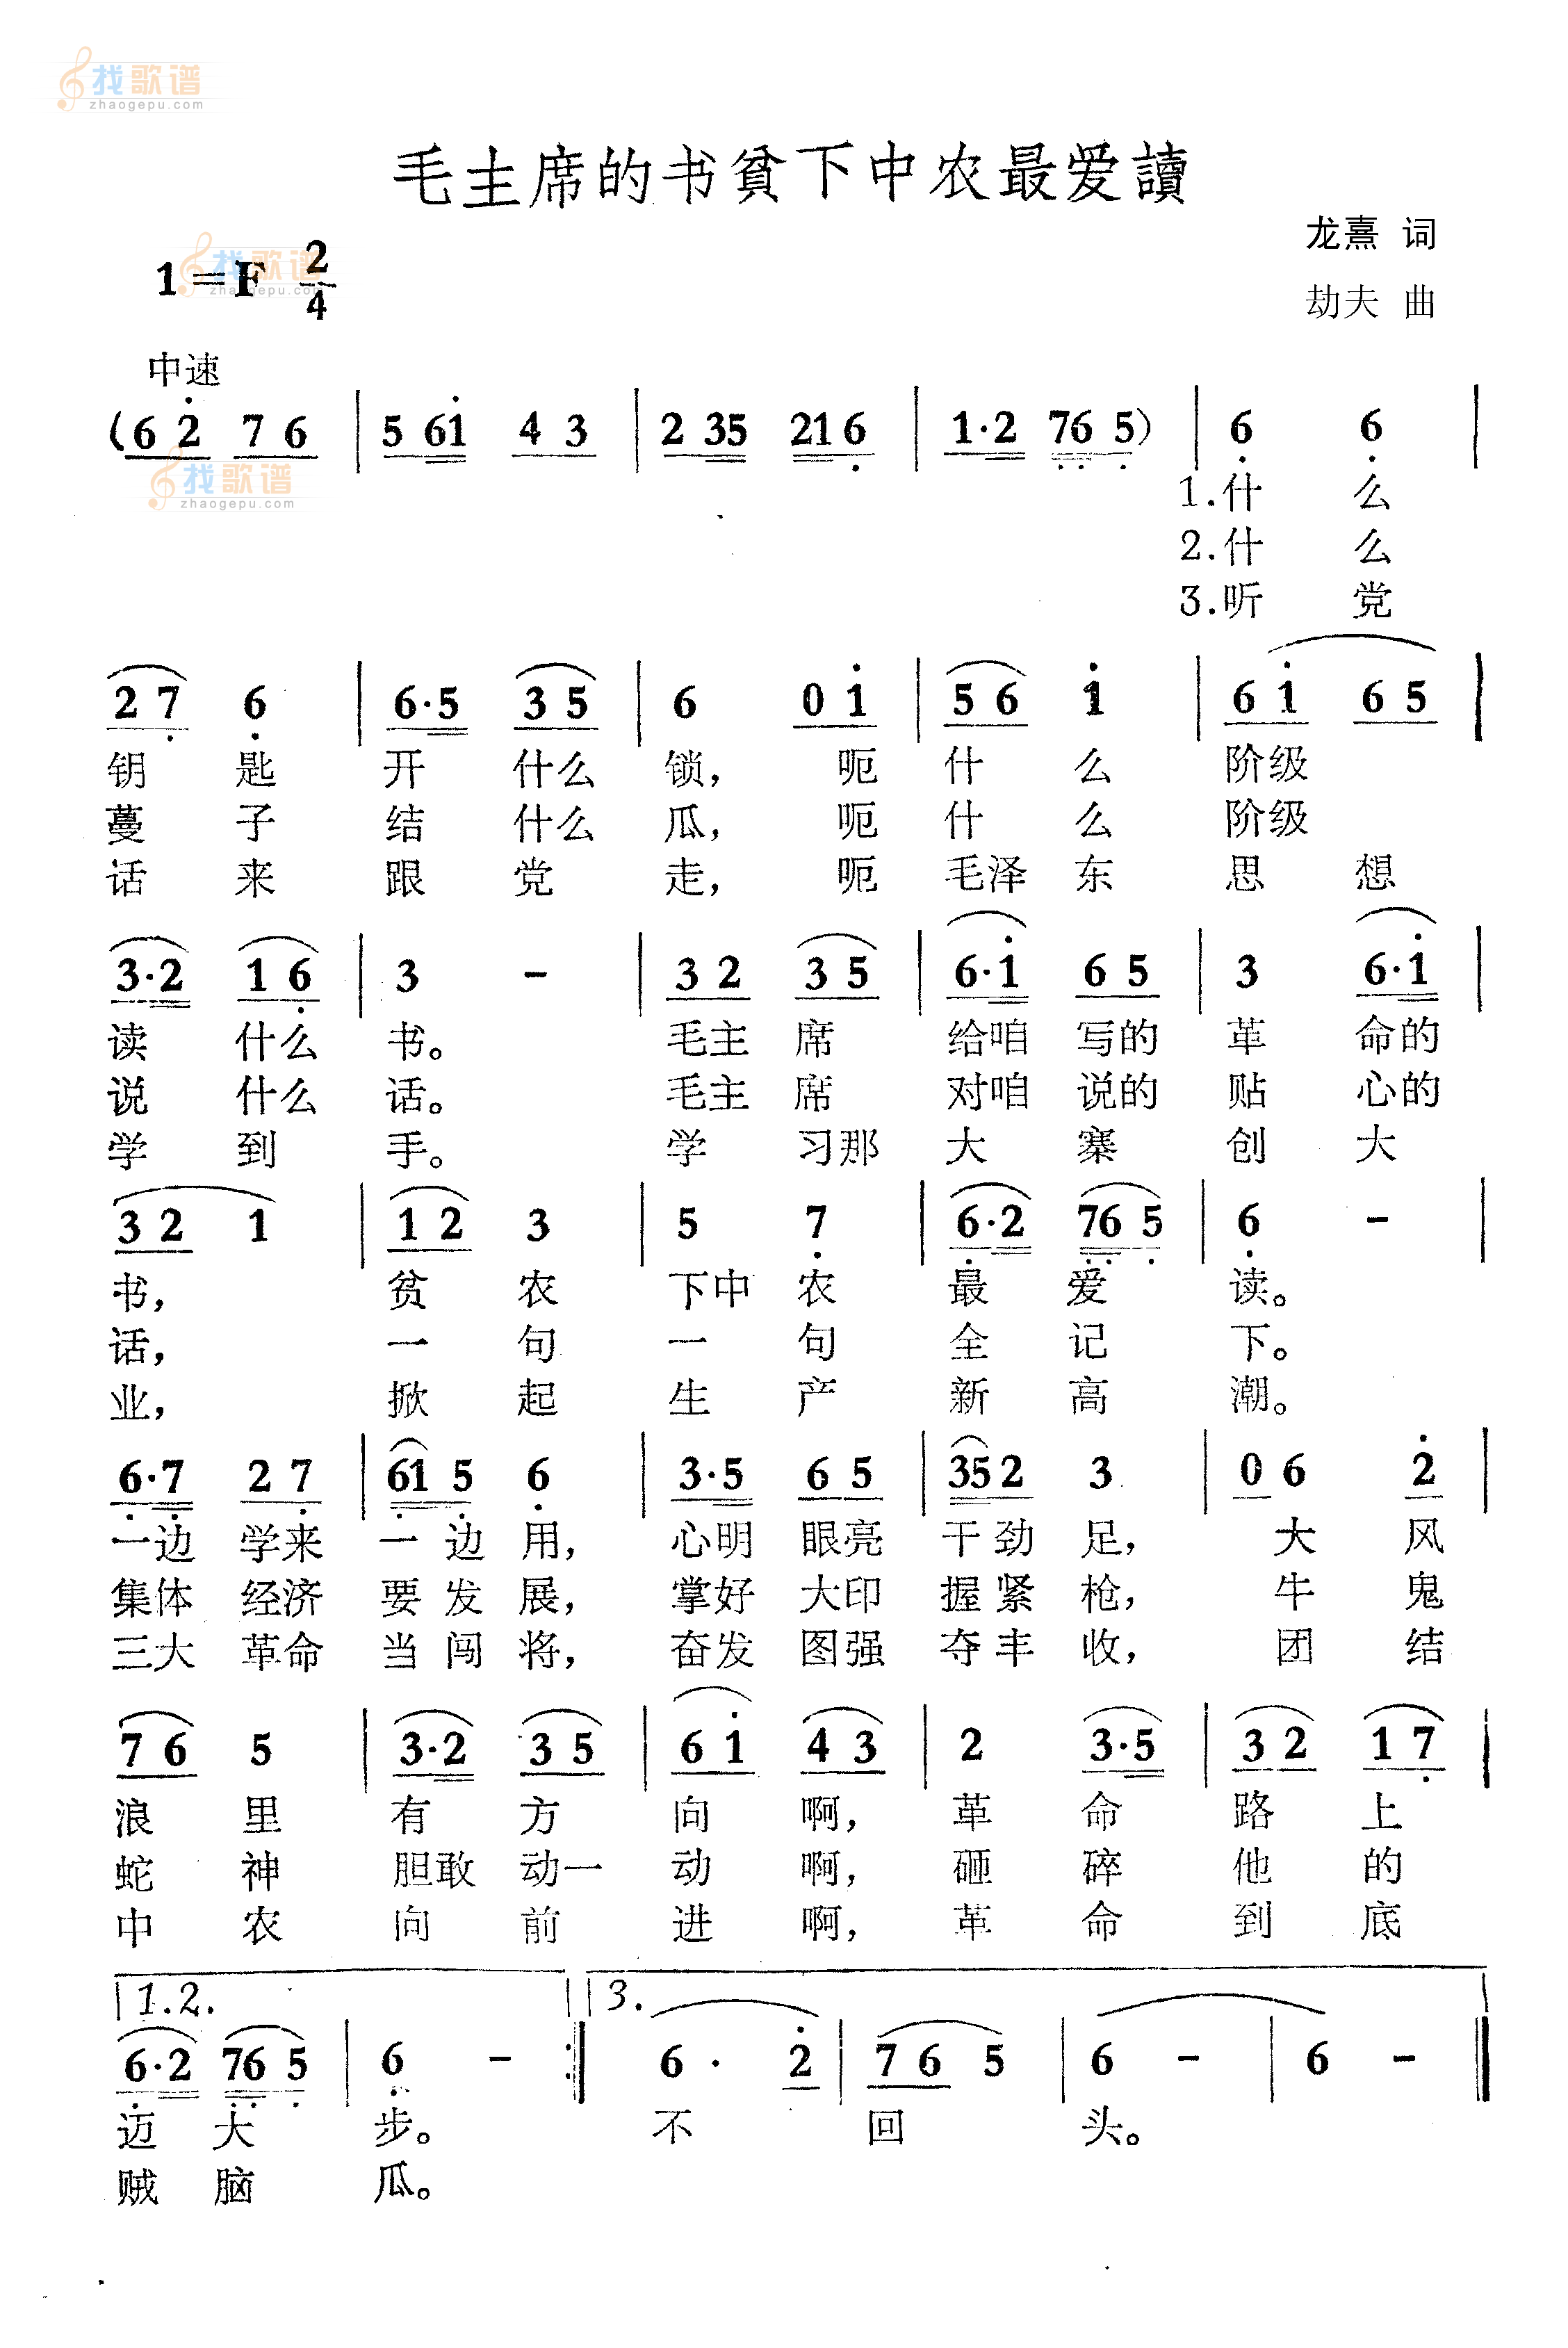 找歌谱
zhaogepu.com
毛主席的书貧下中农最爱讀
龙熹 词
1=F 2/4
找歌谱
zhaogepu.com
劫夫 曲
中速
(6 2 7 6 | 5 61 4 3 | 2 35 21 6 | 1·2 76 5) | 6 6 |
找歌谱
zhaogepu.com
1.什 么
2.什 么
3.听 党
2 7 6 | 6·5 3 5 | 6 0 1 | 5 6 1 | 6 1 6 5 |
钥 匙 开 什么 锁, 呃 什 么 阶级
蔓 子 结 什么 瓜, 呃 什 么 阶级
话 来 跟 党 走, 呃 毛泽 东 思 想
3·2 1 6 | 3 - | 3 2 3 5 | 6·1 6 5 | 3 6·1 |
读 什么 书。 毛主 席 给咱 写的 革 命的
说 什么 话。 毛主 席 对咱 说的 贴 心的
学 到 手。 学 习那 大 寨 创 大
3 2 1 | 1 2 3 | 5 7 | 6·2 76 5 | 6 - |
书, 贫 农 下中 农 最 爱 读。
话, 一 句 一 句 全 记 下。
业, 掀 起 生 产 新 高 潮。
6·7 2 7 | 61 5 6 | 3·5 6 5 | 35 2 3 | 0 6 2 |
一边 学来 一 边 用, 心明 眼亮 干 劲 足, 大 风
集体 经济 要 发 展, 掌好 大印 握 紧 枪, 牛 鬼
三大 革命 当 闯 将, 奋发 图强 夺 丰 收, 团 结
7 6 5 | 3·2 3 5 | 6 1 4 3 | 2 3·5 | 3 2 1 7 |
浪 里 有 方 向 啊, 革 命 路 上
蛇 神 胆敢 动一 动 啊, 砸 碎 他 的
中 农 向 前 进 啊, 革 命 到 底
1.2. 3.
6·2 76 5 | 6 - :| 6 · 2 | 7 6 5 | 6 - | 6 - ‖
迈 大 步。 不 回 头。
贼 脑 瓜。